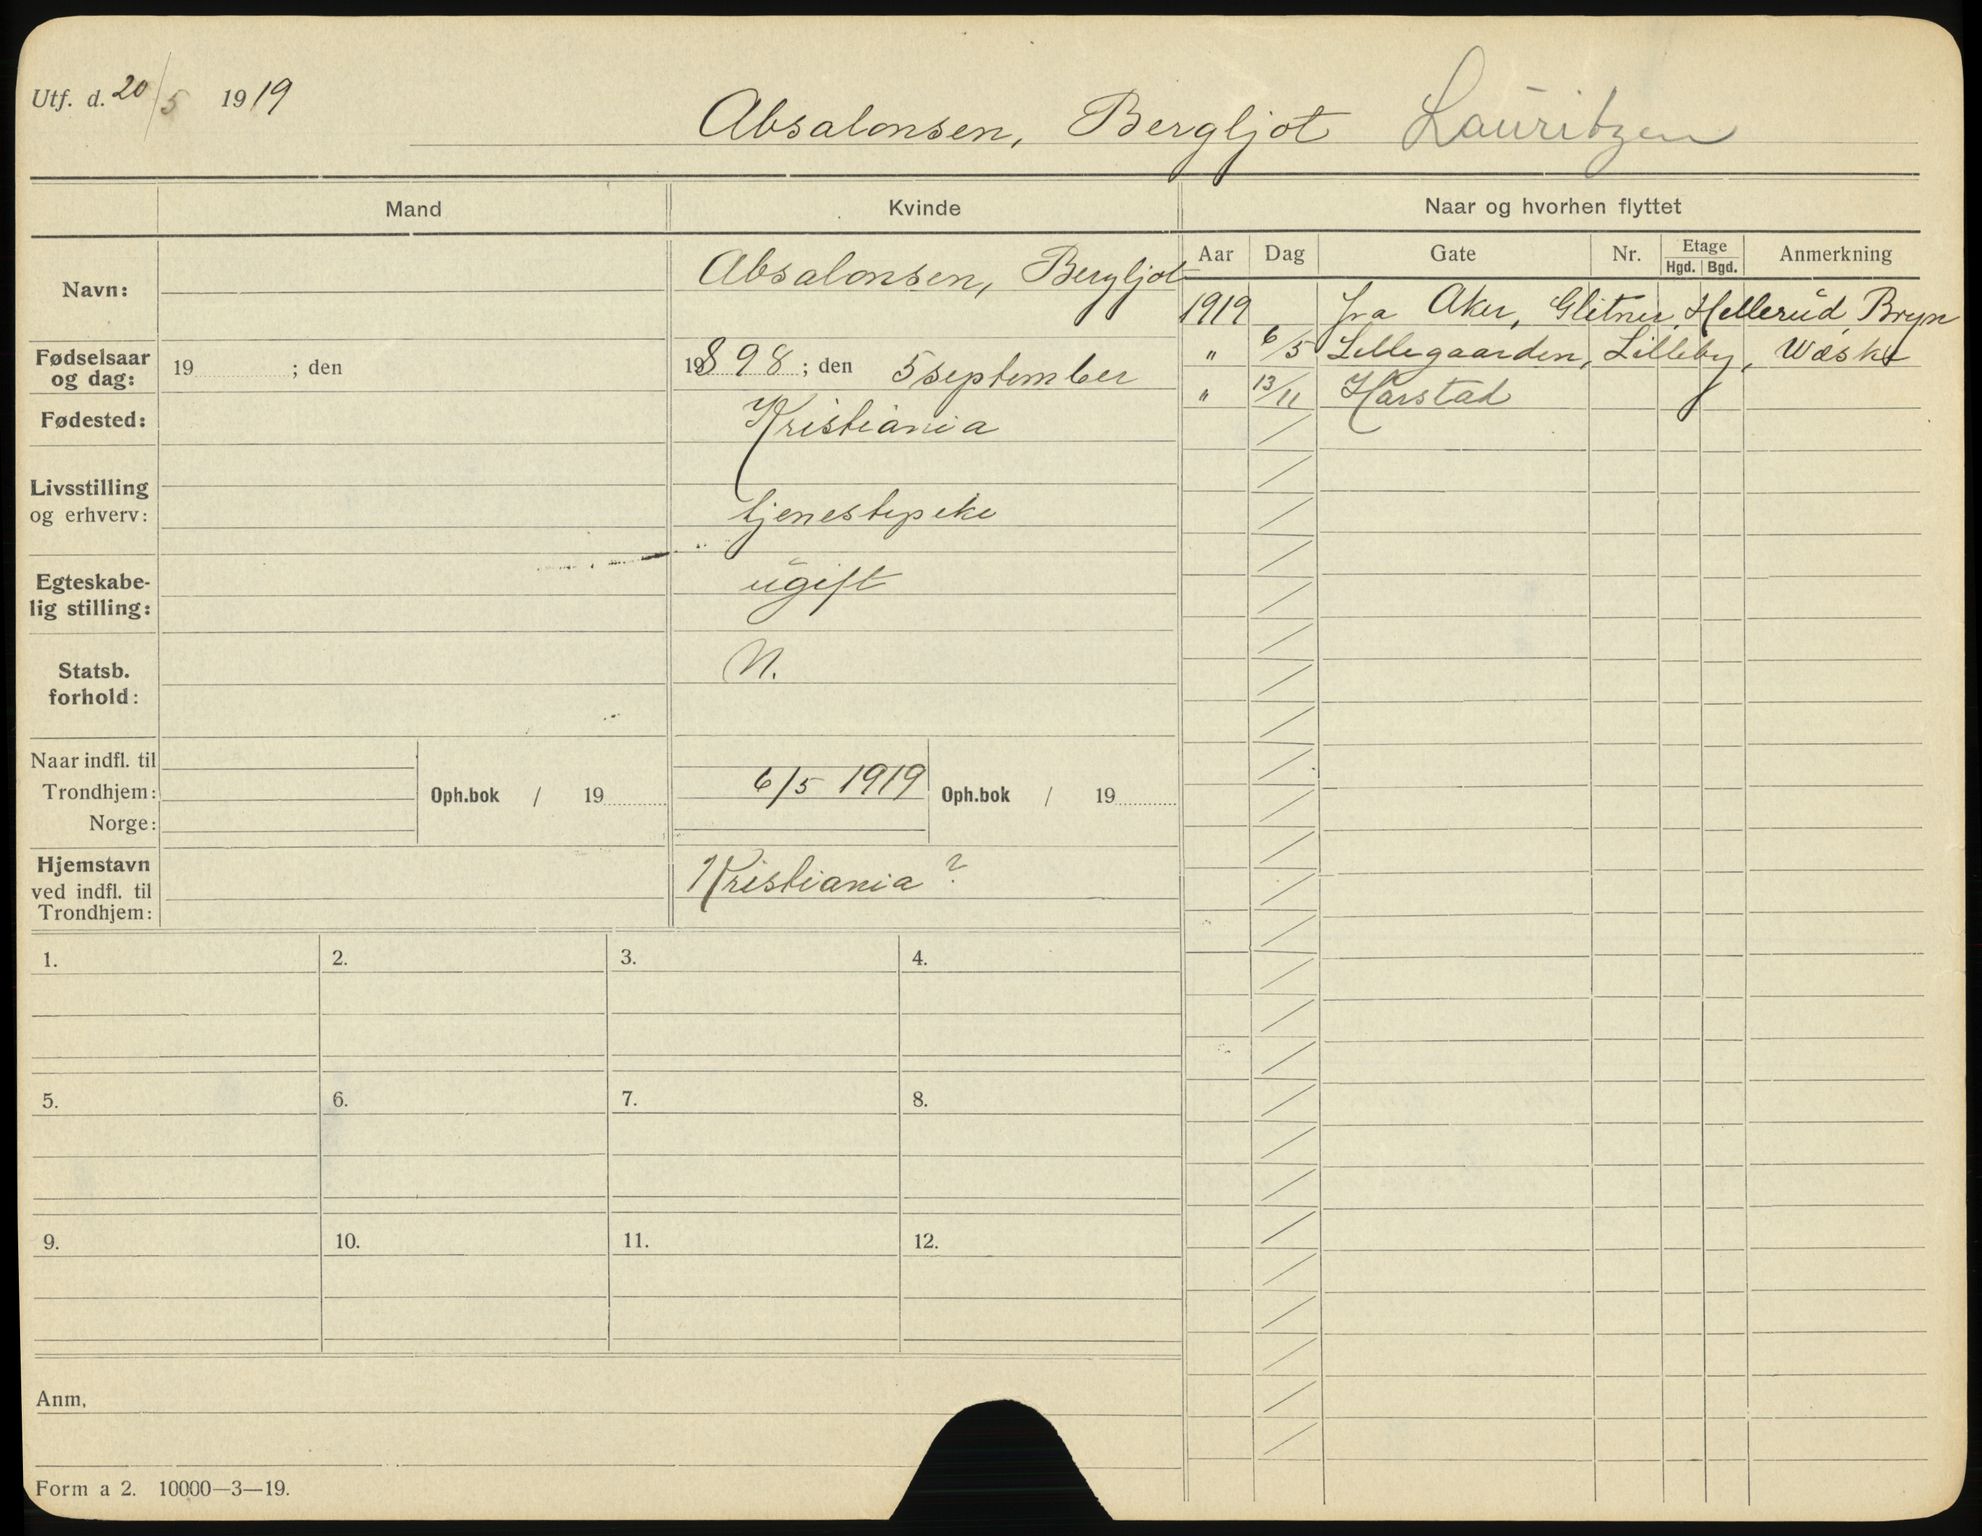 Utf. d. 20/5 1919
Absalonsen, Bergljot Lauritzen
Mand Kvinde Naar og hvorhen flyttet
Aar Dag Gate Nr. Etage Hgd. Bgd. Anmerkning
Navn: Absalonsen, Bergljot
1919 fra Aker, Glitner, Hellerud, Bryn
" 6/5 Lillegaarden, Lilleby,
" 13/11 Harstad
Fødselsaar og dag: 19 ; den 19898 ; den 5 september
Fødested: Kristiania
Livsstilling og erhverv: tjenestepike
Egteskabe-
lig stilling: ugift
Statsb.
forhold: N.
Naar indfl. til
Trondhjem: Oph.bok / 19 6/5 1919 Oph.bok / 19
Norge:
Hjemstavn
ved indfl. til
Trondhjem: Kristiania ?
1. 2. 3. 4.
5. 6. 7. 8.
9. 10. 11. 12.
Anm,
Form a 2. 10000—3—19.